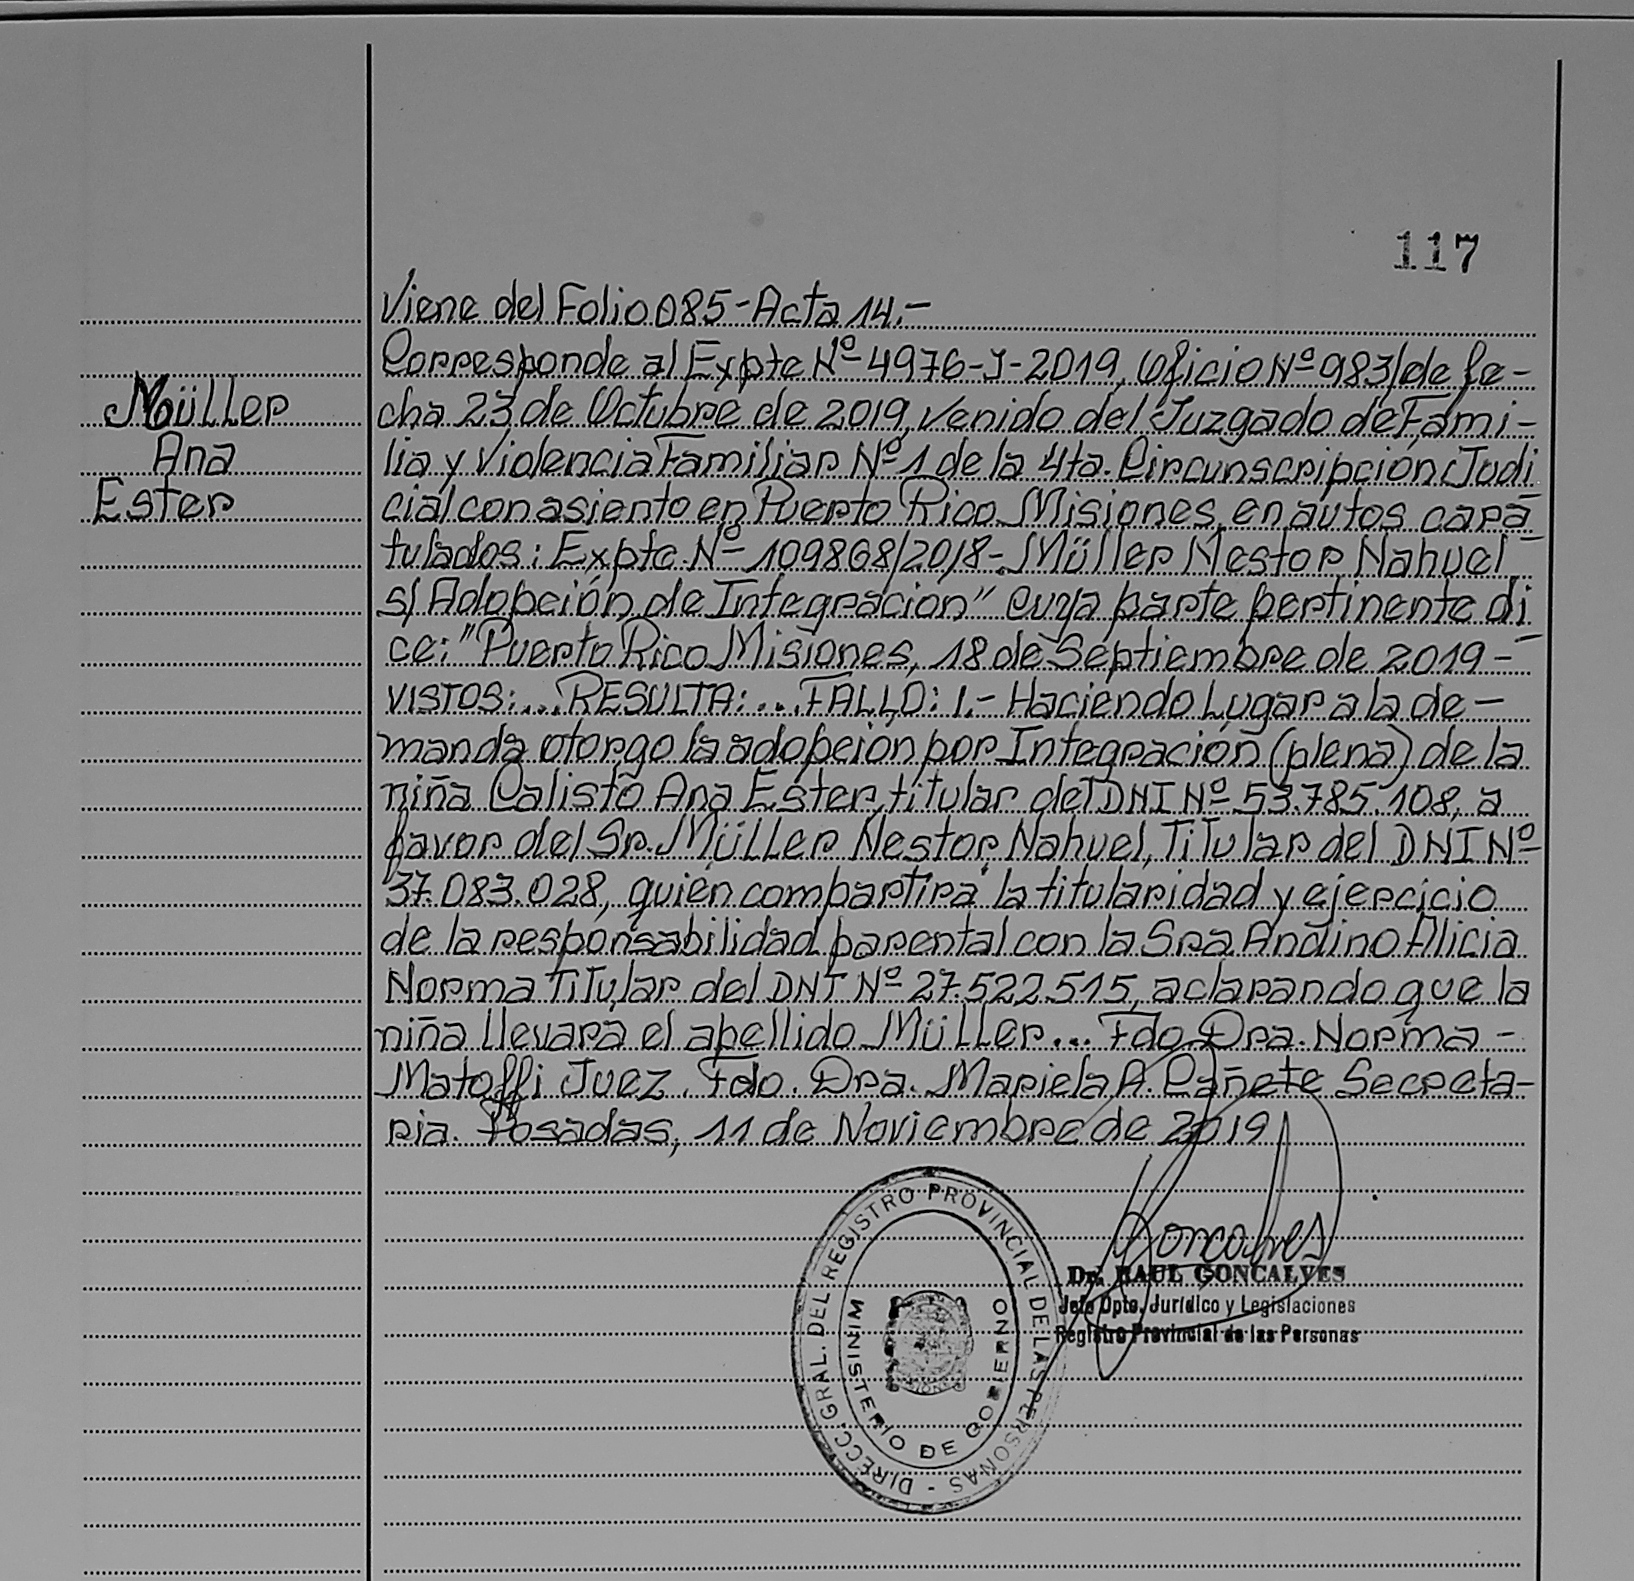 117
Viene del Folio 085-Acta 14.-
Corresponde al Expte Nº 4976-J-2019, Oficio Nº 983/de fe-
Müller
cha 23 de Octubre de 2019, venido del Juzgado de Fami-
Ana
lia y Violencia Familiar Nº 1 de la 4ta. Circunscripción Judi
Ester
cial con asiento en Puerto Rico Misiones, en autos cara
tulados: Expte. Nº 109868/2018-Müller Nestor Nahuel
s/ Adopción de Integracion" cuya parte pertinente di
ce: "Puerto Rico Misiones, 18 de Septiembre de 2019-
VISTOS:...RESULTA:...FALLO: 1.- Haciendo Lugar a la de-
manda otorgo la adopción por Integración (plena) de la
niña Calisto Ana Ester, titular del DNI Nº 53.785.108, a
favor del Sr. Müller Nestor Nahuel, Titular del DNI Nº
37.083.028, quién compartira la titularidad y ejercicio
de la responsabilidad parental con la Sra Andino Alicia
Norma Titular del DNI Nº 27.522.515, aclarando que la
niña llevara el apellido Müller... Fdo Dra. Norma -
Matoffi Juez. Fdo. Dra. Mariela A. Cañete Secreta-
ria. Posadas, 11 de Noviembre de 2019
Goncalves
Dr. RAUL GONCALVES
Jefe Dpto. Jurídico y Legislaciones
Registro Provincial de las Personas
DIRECC. GRAL. DEL REGISTRO PROVINCIAL DE LAS PERSONAS -
MINISTERIO DE GOBIERNO